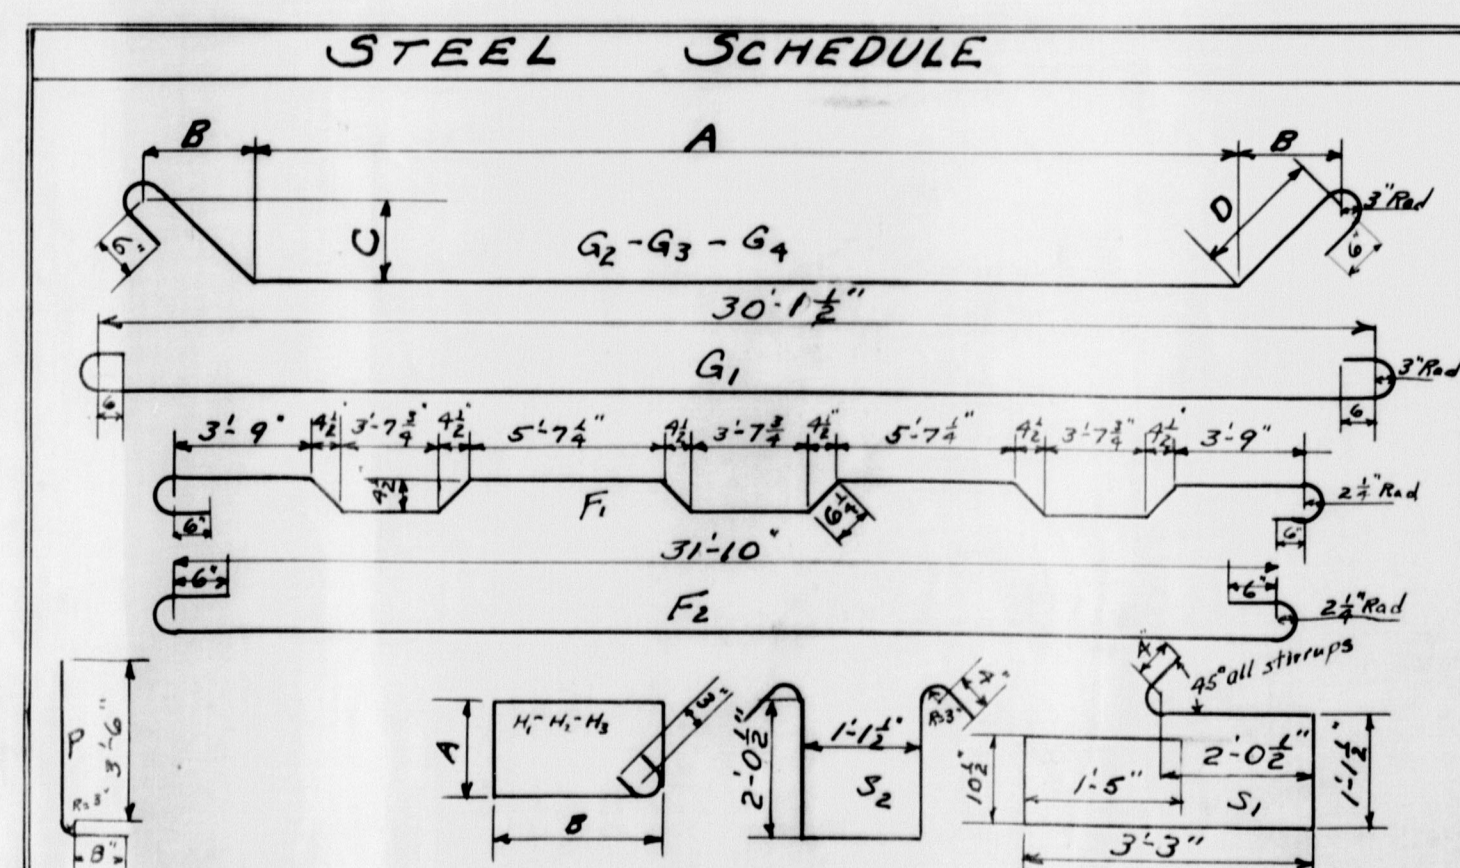 STEEL SCHEDULE
B A B
D 3" Rad
6" C G2 - G3 - G4 6"
30'-1 1/2"
G1 3" Rad
6 6
3'-9" 4 1/2" 3'-7 3/4" 4 1/2" 5'-7 1/4" 4 1/2" 3'-7 3/4" 4 1/2" 5'-7 1/4" 4 1/2" 3'-7 3/4" 4 1/2" 3'-9"
4 1/2 F1 6 1/4" 2 1/4" Rad
6" 6"
31'-10"
6" 6"
F2 2 1/4" Rad
4" 45° all stirrups
P 3'-6" R=3" 8"
A H1 - H2 - H3 3" B
2'-0 1/2" 1'-1 1/2" S2 R=3" 4"
10 1/2" 1'-5" 2'-0 1/2" S1 1'-1 1/2"
3'-3"